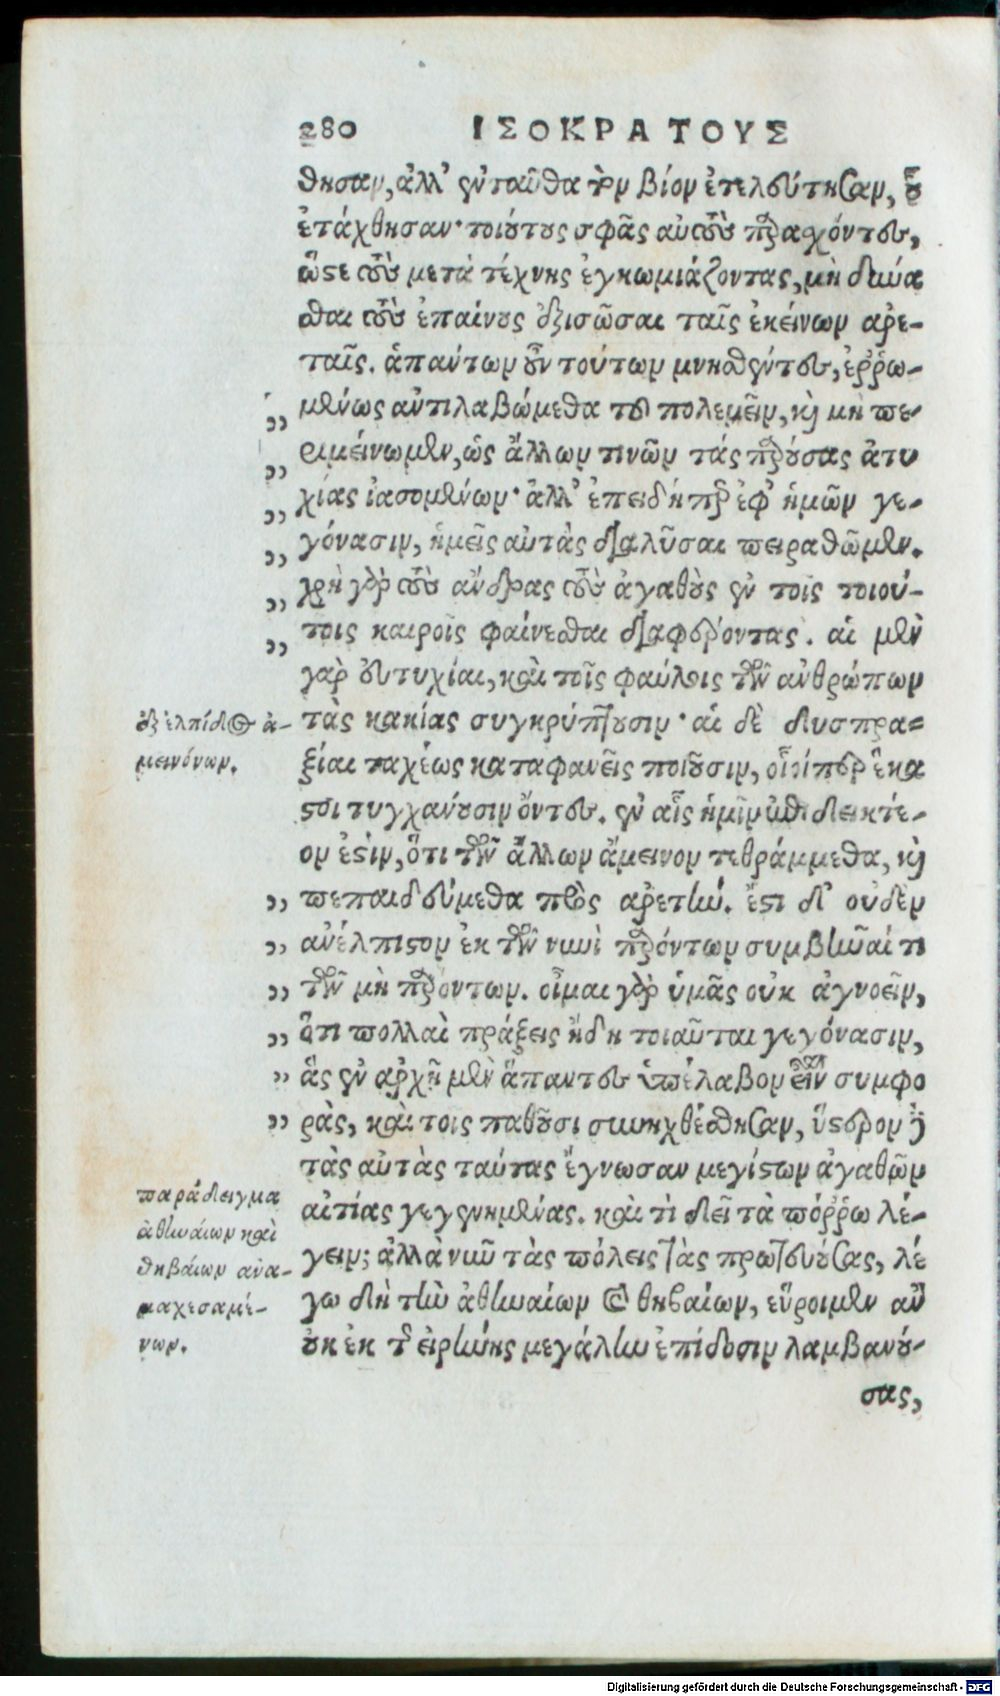 280 ΙΣΟΚΡΑΤΟΥΣ
θησαν, ἀλλ' ἐνταῦθα τὸν βίον ἐτελεύτησαν, οὗ
ἐτάχθησαν· τοιούτους σφᾶς αὐτοὺς παραχόντες,
ὥστε τοὺς μετὰ τέχνης ἐγκωμιάζοντας, μὴ δύνα
σθαι τοὺς ἐπαίνους ἐξισῶσαι ταῖς ἐκείνων ἀρε-
ταῖς. ἁπάντων οὖν τούτων μνησθέντες, ἐῤῥω-
μένως ἀντιλαβώμεθα τοῦ πολεμεῖν, καὶ μὴ πε-
ριμείνωμεν, ὡς ἄλλων τινῶν τάς παρούσας ἀτυ
χίας ἰασομένων· ἀλλ' ἐπειδήπερ ἐφ' ἡμῶν γε-
γόνασιν, ἡμεῖς αὐτὰς διαλῦσαι πειραθῶμεν.
χρὴ γὰρ τοὺς ἄνδρας τοὺς ἀγαθοὺς ἐν τοῖς τοιού-
τοις καιροῖς φαίνεσθαι διαφέροντας. αἱ μὲν
γὰρ εὐτυχίαι, καὶ τοῖς φαύλοις τῶν ἀνθρώπων
τὰς κακίας συγκρύπτουσιν· αἱ δὲ δυσπρα-
ξίαι ταχέως καταφανεῖς ποιοῦσιν, οἷοίπερ ἕκα
στοι τυγχάνουσιν ὄντες. ἐν αἷς ἡμῖν ἐπιδεικτέ-
ον ἐστίν, ὅτι τῶν ἄλλων ἄμεινον τεθράμμεθα, καὶ
πεπαιδεύμεθα πρὸς ἀρετήν. ἔστι δ' οὐδὲν
ἀνέλπιστον ἐκ τῶν νυνὶ παρόντων συμβῆναί τι
τῶν μὴ παρόντων. οἶμαι γὰρ ὑμᾶς οὐκ ἀγνοεῖν,
ὅτι πολλαὶ πράξεις ἤδη τοιαῦται γεγόνασιν,
ἃς ἐν ἀρχῇ μὲν ἅπαντες ὑπέλαβον εἶναι συμφο
ρὰς, καὶ τοῖς παθοῦσι συνηχθέσθησαν, ὕστερον δὲ
τὰς αὐτὰς ταύτας ἔγνωσαν μεγίστων ἀγαθῶν
αἰτίας γεγενημένας. καὶ τί δεῖ τὰ πόῤῥω λέ-
γειν; ἀλλὰ νῦν τὰς πόλεις τὰς πρωτευούσας, λέ
γω δὴ τὴν ἀθηναίων καὶ θηβαίων, εὕροιμεν ἂν
οὐκ ἐκ τῆς εἰρήνης μεγάλην ἐπίδοσιν λαμβανού-
σας,
ἐξ ἐλπίδος ἀ-
μεινόνων.
παράδειγμα
ἀθηναίων καὶ
θηβαίων ἀνα-
μαχεσαμέ-
νων.
Digitalisierung gefördert durch die Deutsche Forschungsgemeinschaft - DFG